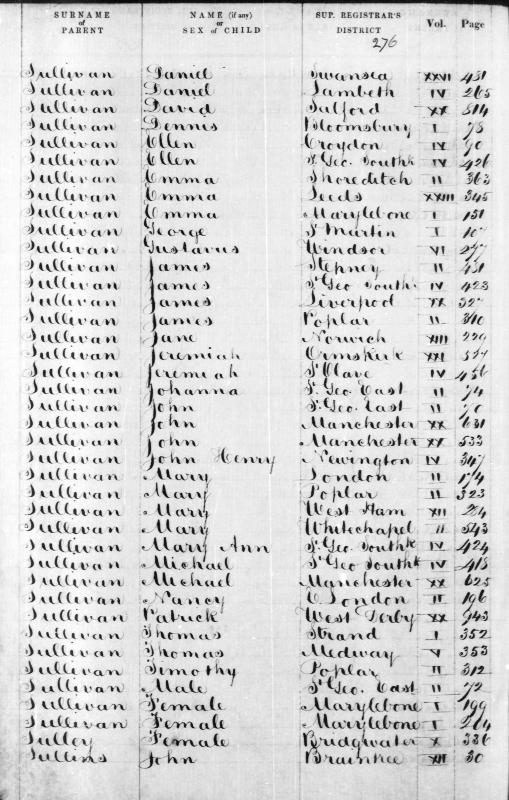 SURNAME of PARENT NAME (if any) or SEX of CHILD SUP. REGISTRAR'S DISTRICT Vol. Page
276
Sullivan Daniel Swansea XXVI 481
Sullivan Daniel Lambeth IV 265
Sullivan David Salford XX 814
Sullivan Dennis Bloomsbury I 73
Sullivan Ellen Croydon IV 90
Sullivan Ellen St Geo. Southk IV 426
Sullivan Emma Shoreditch II 363
Sullivan Emma Leeds XXIII 345
Sullivan Emma Marylebone I 151
Sullivan George St Martin I
Sullivan Gustavus Windsor VI 277
Sullivan James Stepney II 431
Sullivan James St Geo South. IV 423
Sullivan James Liverpool XX
Sullivan James Poplar II 310
Sullivan Jane Norwich XIII 229
Sullivan Jeremiah Ormskirk XXI
Sullivan Jeremiah St Olave IV 456
Sullivan Johanna St. Geo. East II 74
Sullivan John St. Geo. East II 70
Sullivan John Manchester XX 631
Sullivan John Manchester XX 533
Sullivan John Henry Newington IV 347
Sullivan Mary London II 174
Sullivan Mary Poplar II 323
Sullivan Mary West Ham XII
Sullivan Mary Whitechapel II 543
Sullivan Mary Ann St. Geo. Southk IV 424
Sullivan Michael St Geo Southk IV 418
Sullivan Michael Manchester XX 625
Sullivan Nancy E London II 196
Sullivan Patrick West Derby XX 943
Sullivan Thomas Strand I 352
Sullivan Thomas Medway V 353
Sullivan Timothy Poplar II 312
Sullivan Male St Geo. East II 72
Sullivan Female Marylebone I 199
Sullivan Female Marylebone I 264
Sulley Female Bridgwater X 336
Sullins John Braintree XII 30